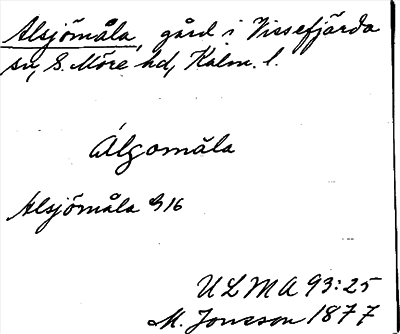 Alsjömåla, gård i Vissefjärda
sn, S. Möre hd, Kalm. l.
Algomåla
Alsjömåla
ULMA 93:25
M. Jonsson 1877